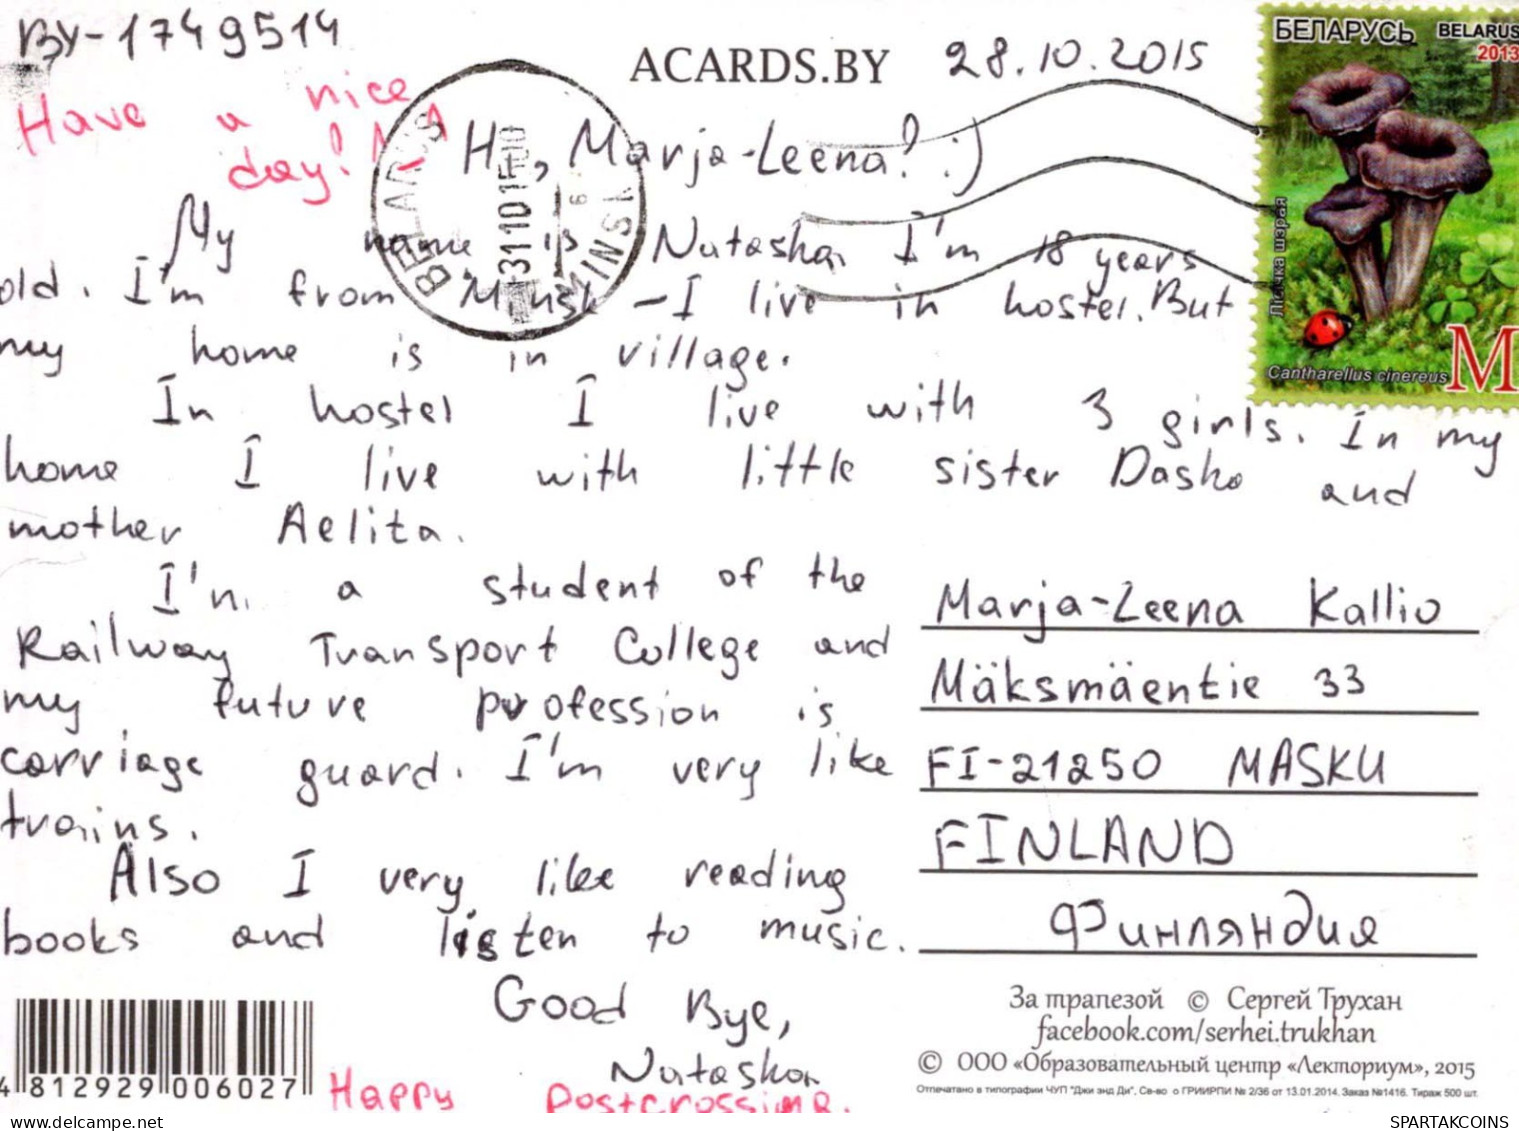 BY-1749514
ACARDS.BY
28.10.2015
БЕЛАРУСЬ BELARUS
2013
Have a nice
day!
BELARUS
MINSK
Hi, Marja-Leena! :)
My name is Natasha. I'm 18 years
old. I'm from Minsk – I live in hostel. But
my home is in village.
Cantharellus cinereus M
In hostel I live with 3 girls. In my
home I live with little sister Dasha and
mother Aelita.
I'm a student of the
Railway Transport College and
my future profession is
carriage guard. I'm very like
trains.
Also I very like reading
books and listen to music.
Good Bye,
Natasha
Happy Postcrossing.
Marja-Leena Kallio
Mäksmäentie 33
FI-21250 MASKU
FINLAND
Финляндия
За трапезой © Сергей Трухан
facebook.com/serhei.trukhan
© ООО «Образовательный центр «Лекториум», 2015
Отпечатано в типографии ЧУП "Джи энд Ди", Св-во о ГРИИРПИ № 2/36 от 13.01.2014. Заказ №1416. Тираж 500 шт.
4 812929 006027
SPARTAKCOINS